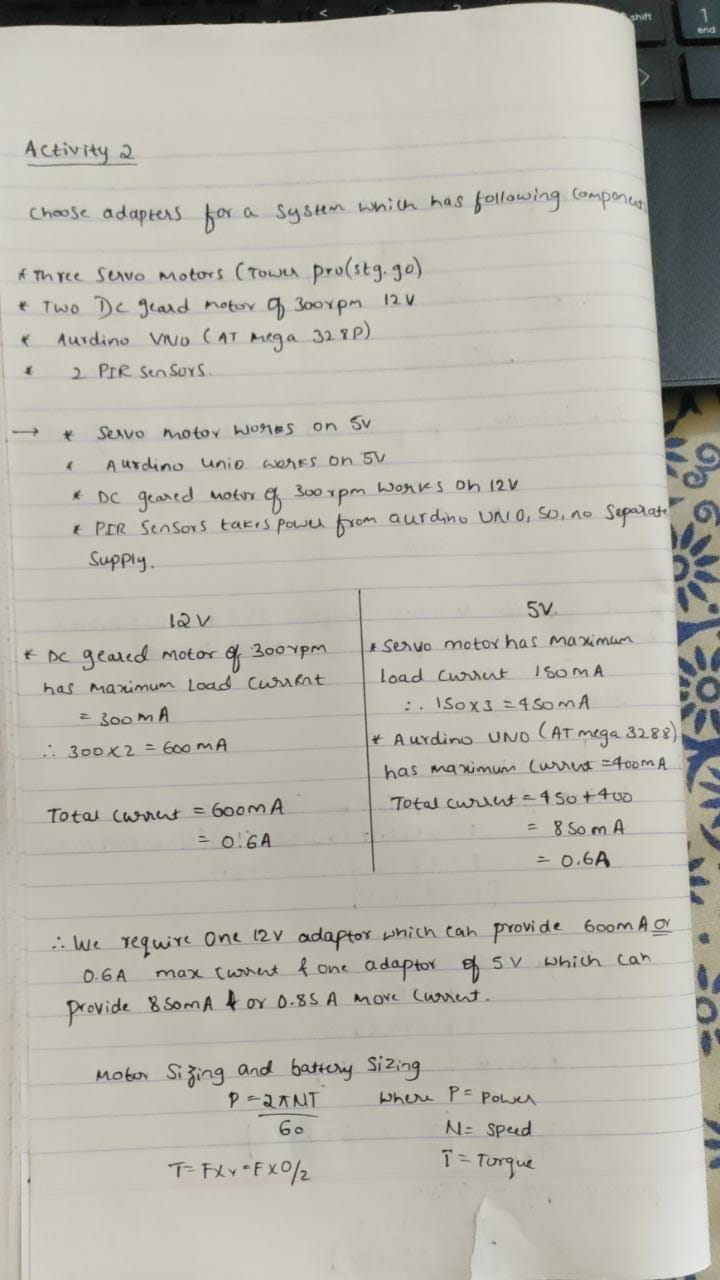 shift
1
end
Activity 2
Choose adapters for a system which has following component
* Three Servo motors (Tower pro(stg.go)
* Two DC geard motor of 300rpm 12V
* Aurdino VNO (AT Mega 328P)
* 2 PIR Sensors.
→ * Servo motor works on 5V
* Aurdino Unio works on 5V
* DC geared motor of 300rpm works on 12V
* PIR Sensors takes power from aurdino UNO, so, no Separate
Supply.
12V
* DC geared motor of 300rpm
has maximum load current
= 300mA
∴ 300x2 = 600mA
Total current = 600mA
= 0.6A
5V.
* Servo motor has maximum
load current 150mA
∴ 150x3 = 450mA
* Aurdino UNO (AT mega 3288)
has maximum current =400mA
Total current = 450+400
= 850mA
= 0.6A
∴ We require one 12V adaptor which can provide 600mA or
0.6A max current & one adaptor of 5V which can
provide 850mA or 0.85A more current.
Motor Sizing and battery Sizing
P = 2πNT/60 where P = Power
N = Speed
T = FXr = FXD/2 T = Torque